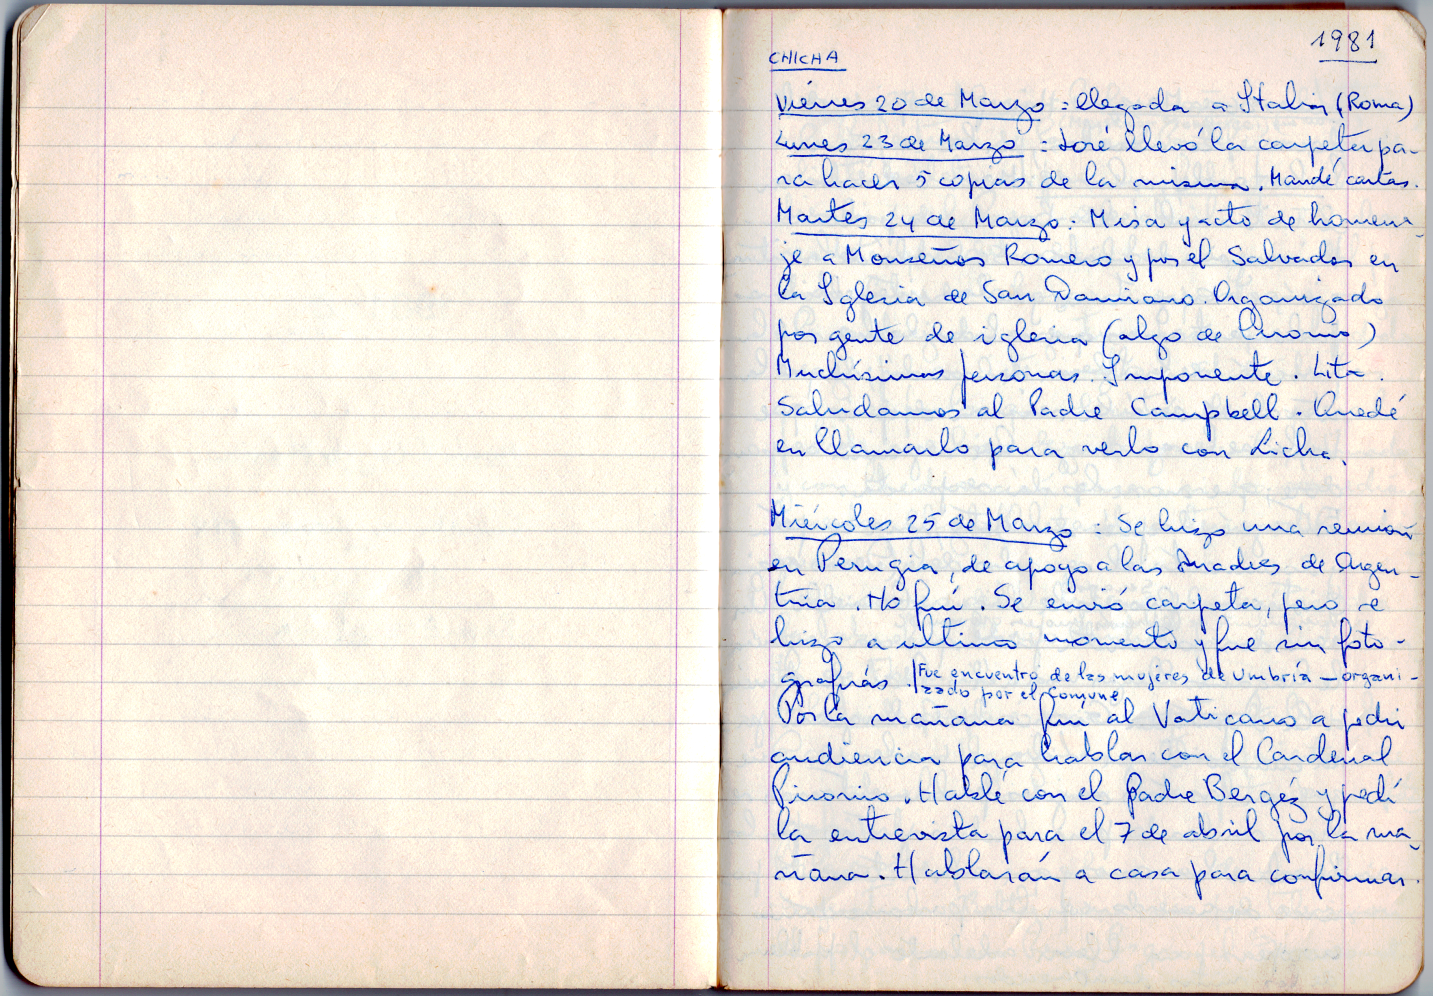 CHICHA
1981
Viérnes 20 de Marzo: llegada a Italia (Roma)
Lunes 23 de Marzo: José llevó la carpeta pa-
ra hacer 5 copias de la misma. Mandé cartas.
Martes 24 de Marzo: Misa y acto de homena-
je a Monseñor Romero y por el Salvador en
la Iglesia de San Damiano. Organizado
por gente de iglesia (algo de)
Muchísimas personas. Imponente. Lita.
Saludamos al Padre Campbell. Quedé
en llamarlo para verlo con Licha.
Miércoles 25 de Marzo: Se hizo una reunión
en Perugia, de apoyo a las Madres de Argen-
tina. No fuí. Se envió carpeta, pero se
hizo a ultimo momento y fue sin foto-
grafías. Fue encuentro de las mujeres de Umbría - organi-
zado por el Comune
Por la mañana fuí al Vaticano a pedir
audiencia para hablar con el Cardenal
Pironio. Hablé con el Padre Bergéz y pedí
la entrevista para el 7 de abril por la ma-
ñana. Hablarán a casa para confirmar.